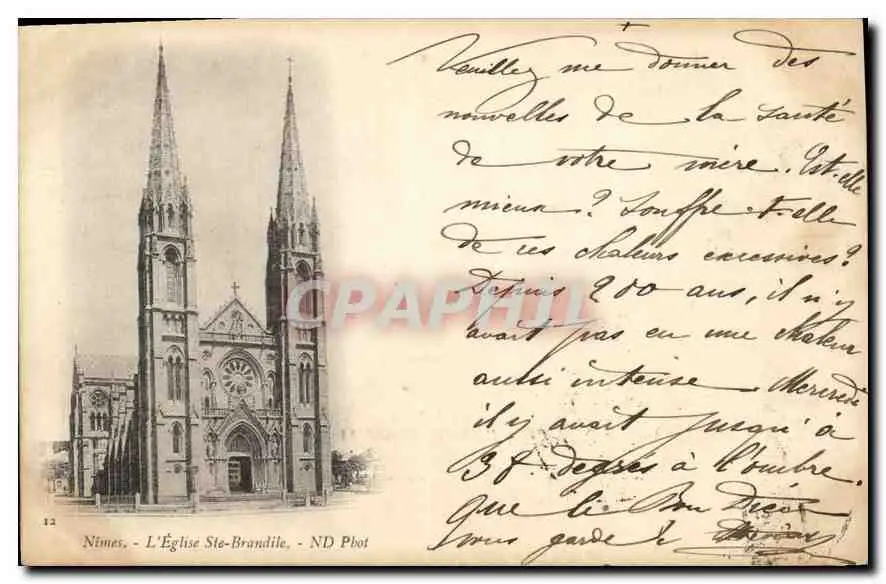 Veuillez me donner des
nouvelles de la santé
de votre mère. Est-elle
mieux? Souffre-t-elle
de ces chaleurs excessives?
Depuis 200 ans, il n'y
avait pas eu une chaleur
aussi intense Mercredi
il y avait jusqu'à
38 degrés à l'ombre.
Que le Bon Dieu
vous garde
CPAPHIL
12
Nîmes. - L'Église Ste-Brandile. - ND Phot